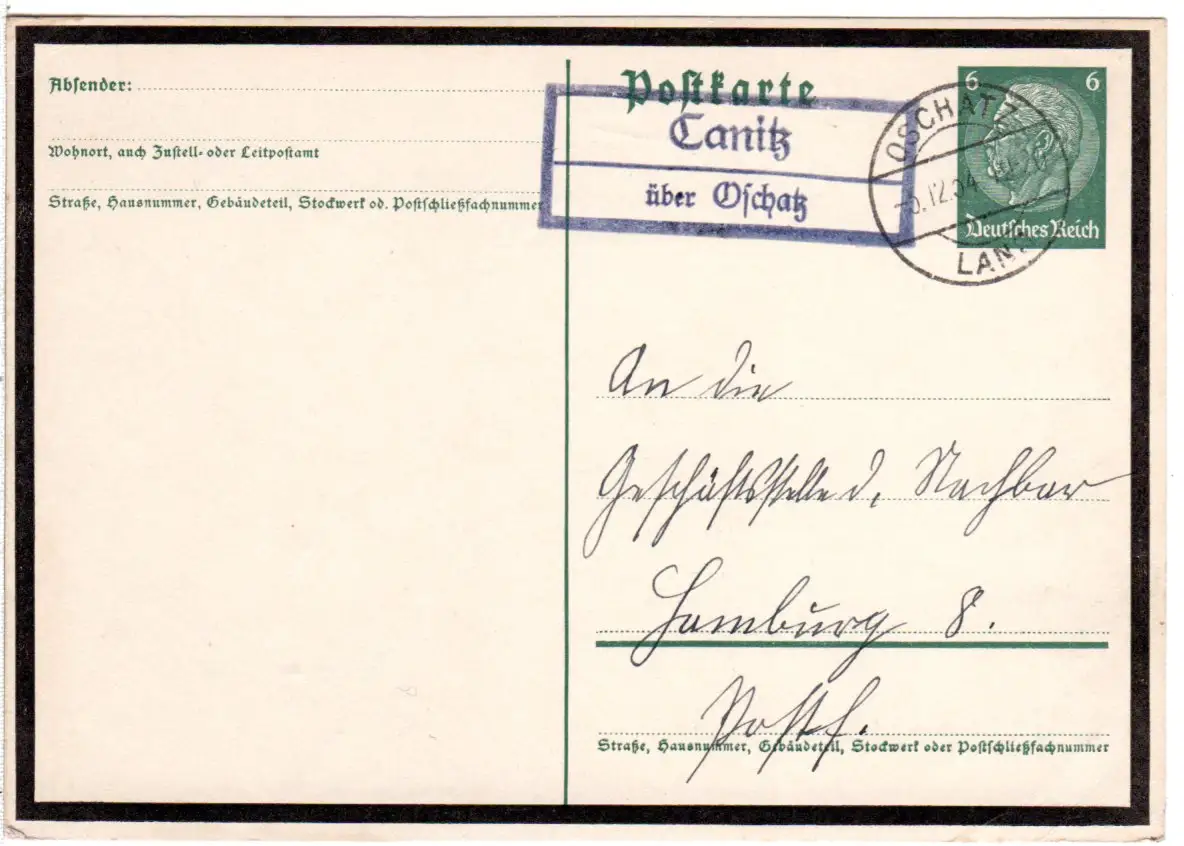 Absender:
Wohnort, auch Zustell- oder Leitpostamt
Straße, Hausnummer, Gebäudeteil, Stockwerk od. Postschließfachnummer
Postkarte
Canitz
über Oschatz
6 6
OSCHATZ
12.34
LAND
Deutsches Reich
An die
Geschäftsstelle d. Nachbar
Hamburg 8.
Postf.
Straße, Hausnummer, Gebäudeteil, Stockwerk oder Postschließfachnummer